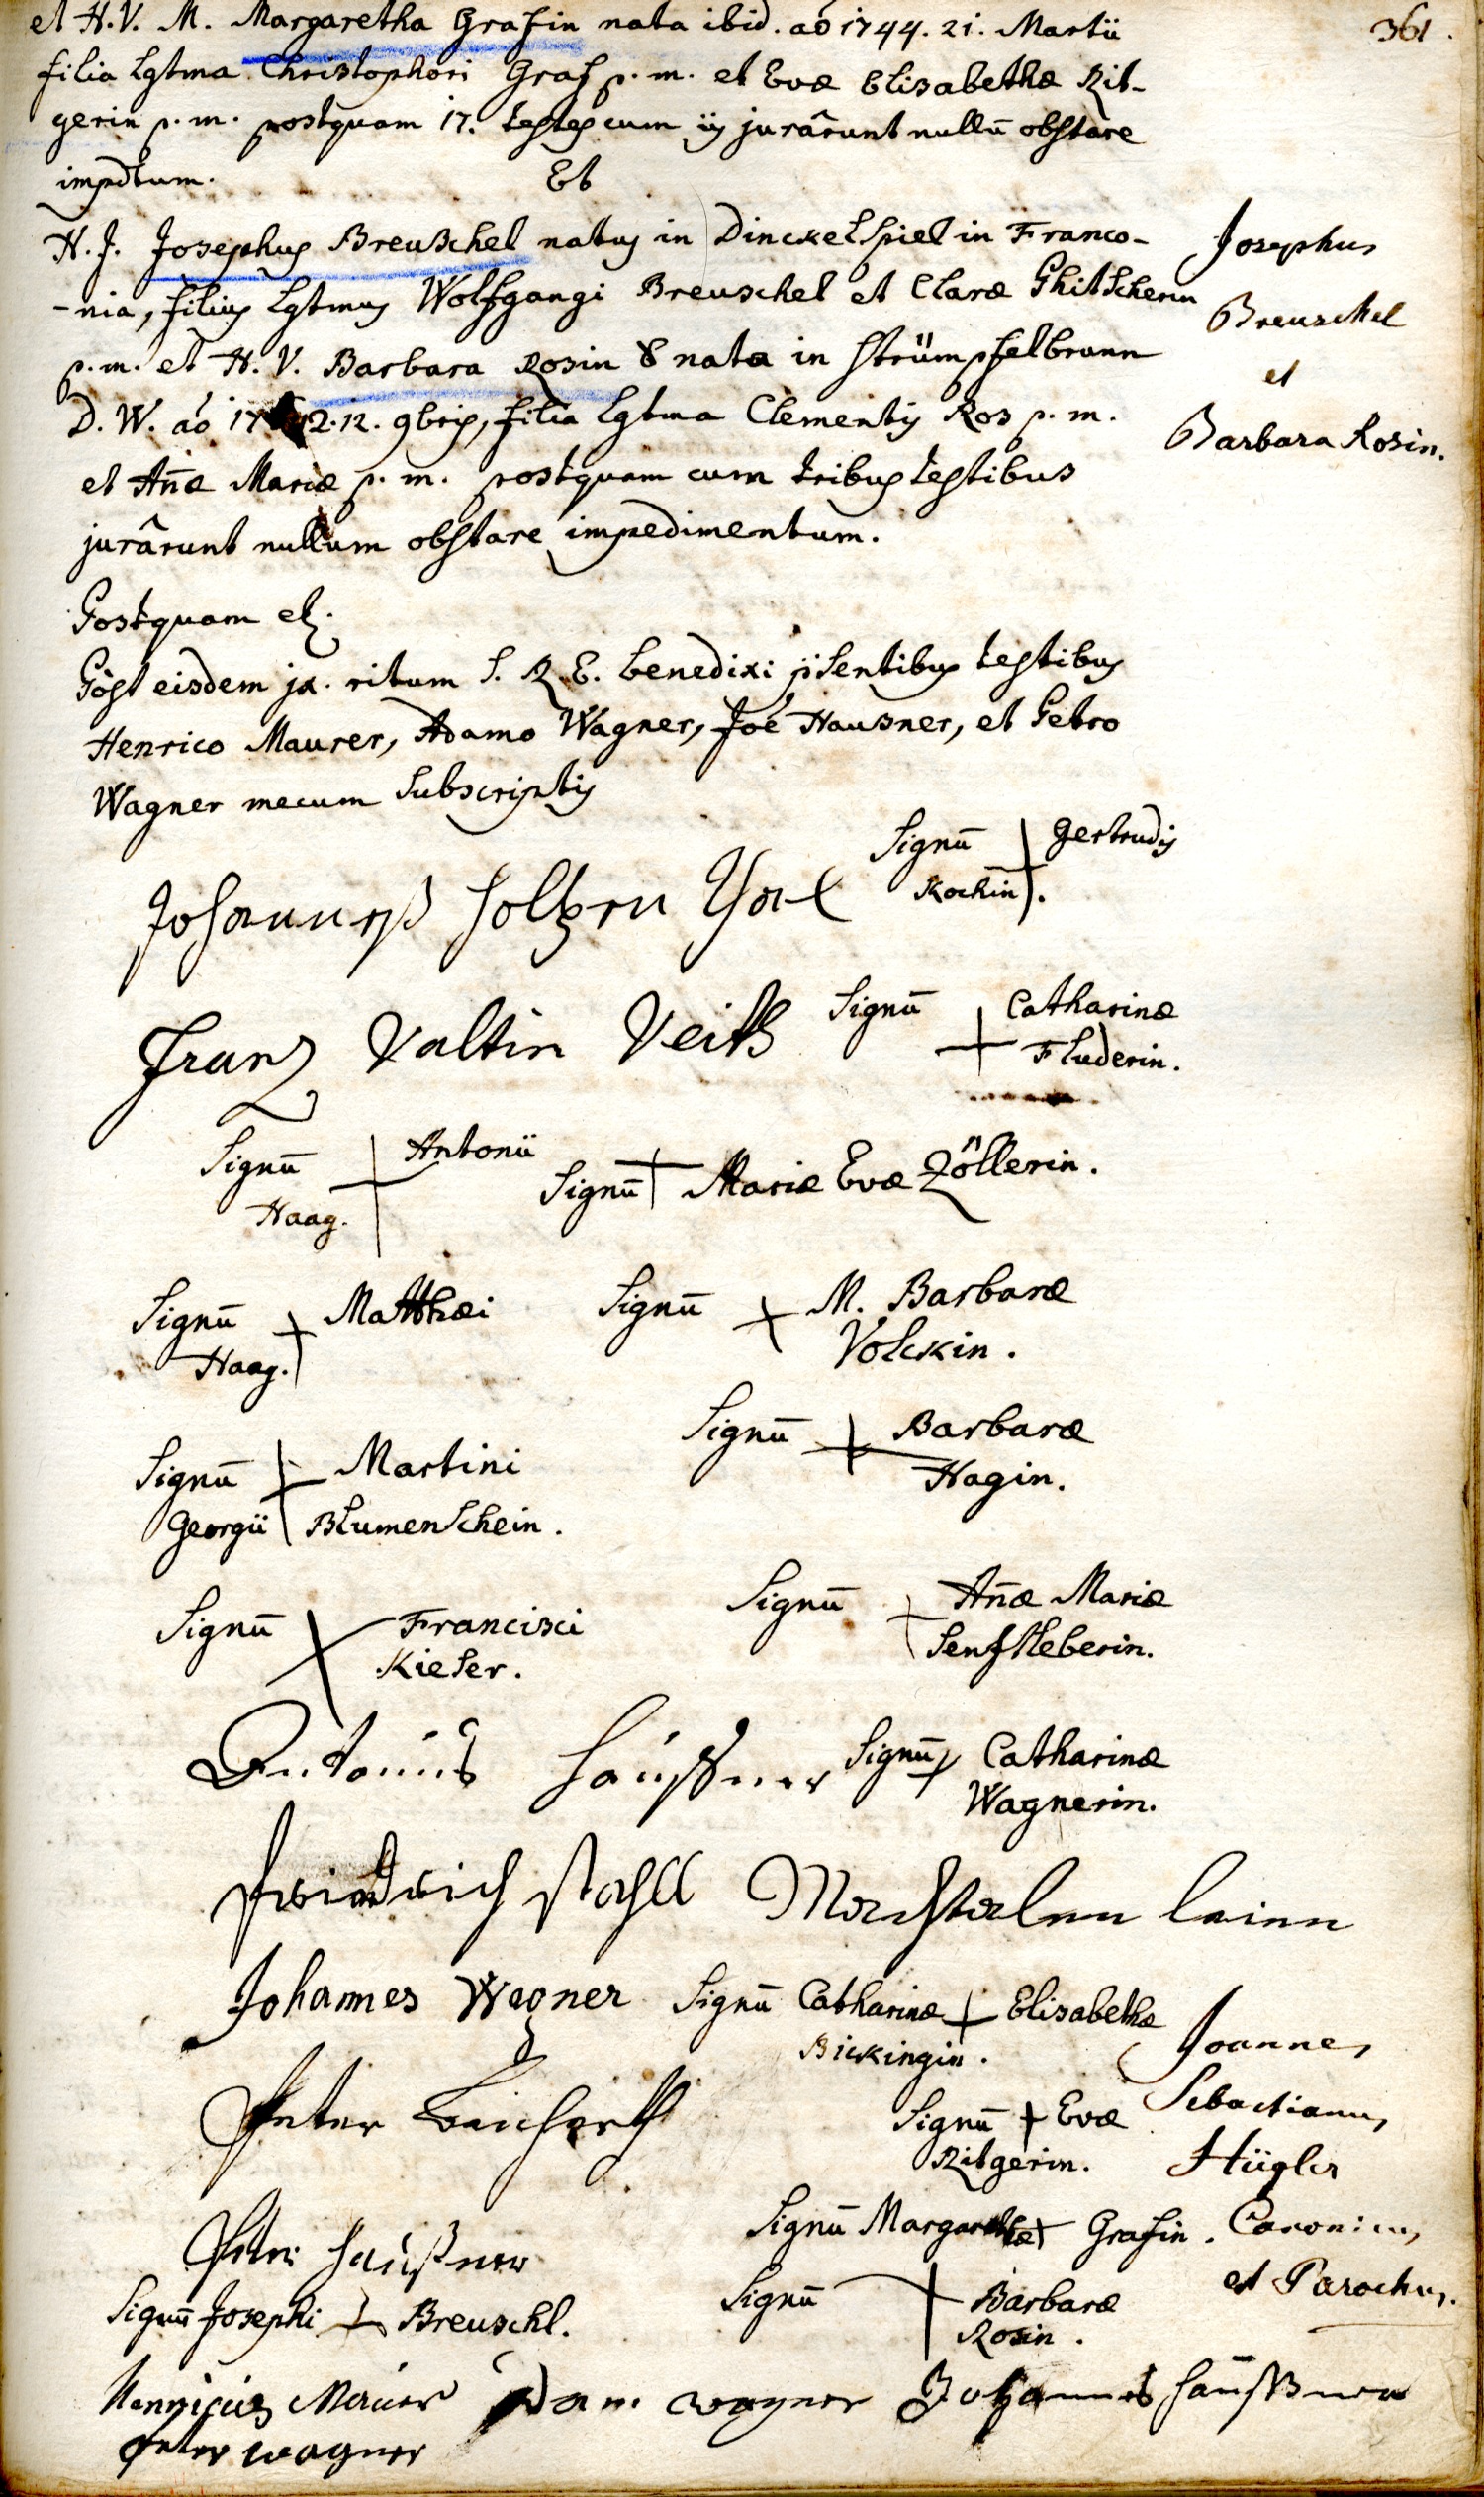 361.
et H. V. M. Margaretha Grafin nata ibid. aō 1744. 21. Martii
filia Lgtma Christophori Graf p. m. et Evæ Elisabethæ Rit-
gerin p. m. postquam 17. testes cum iis jurârunt nullū obstare
impdtum. Et
H. J. Josephus Breuschel natus in Dinckelspiel in Franco-
-nia, filius Lgtmus Wolfgangi Breuschel et Claræ Ghitscherin
p. m. et H. V. Barbara Rosin nata in Strümpfelbrunn
D. W. aō 17 2. 12. 9bris, filia Lgtma Clementis Ros p. m.
et Añæ Mariæ p. m. postquam cum tribus testibus
jurârunt nullum obstare impedimentum.
Josephus
Breuschel
et
Barbara Rosin.
Postquam
Póst eisdem jx. ritum S. R. E. benedixi p̄sentibus testibus
Henrico Maurer, Adamo Wagner, Joē Hausner, et Petro
Wagner mecum subscriptis
Signū + Gertrudis
Kochin.
Johannes
Franz Valtin Veith
Signū + Catharinæ
Fluderin.
Signū + Antonii
Haag.
Signū + Mariæ Evæ Zöllerin.
Signū + Matthæi
Haag.
Signū + M. Barbaræ
Volckin.
Signū + Martini
Georgii Blumenschein.
Signū + Barbaræ
Hagin.
Signū + Francisci
Kieser.
Signū + Añæ Mariæ
Senftleberin.
Antonius Haußner
Signū + Catharinæ
Wagnerin.
Friedrich Stahll
Johannes Wagner
Signū Catharinæ + Elisabethæ
Bickingin.
Peter
Signū + Evæ
Ritgerin.
Peter Haußner
Signū Margarethæ + Grafin.
Signū Josephi + Breuschl.
Signū + Barbaræ
Rosin.
Joannes
Sebastianus
Hügler
Canonicus
et Parochus.
Henricus Maurer Adam Wagner Johannes Haußner
Peter Wagner